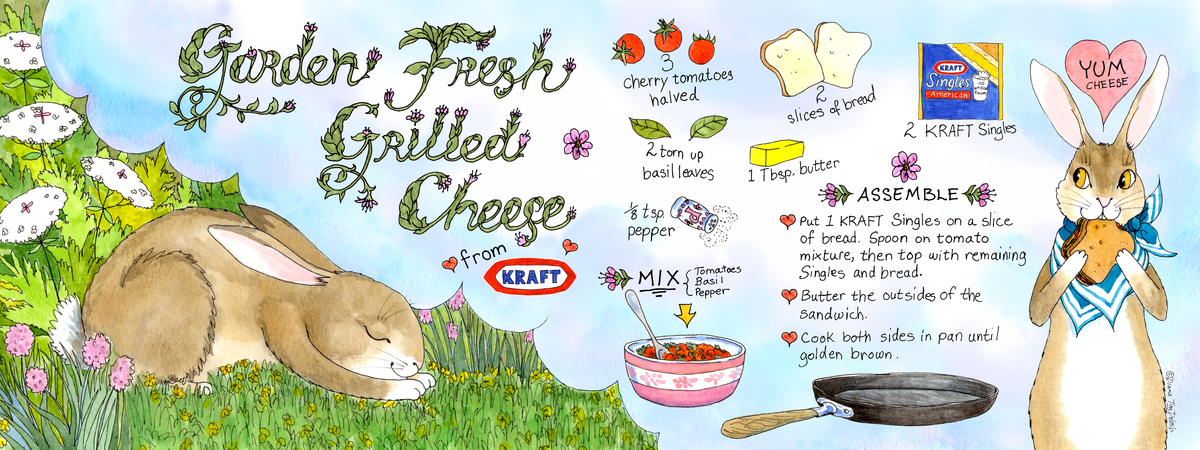 Garden Fresh
Grilled
Cheese
from
KRAFT
3
cherry tomatoes
halved
2
slices of bread
KRAFT
Singles
American
2 KRAFT Singles
2 torn up
basil leaves
1 Tbsp. butter
1/8 tsp
pepper
MIX { Tomatoes
Basil
Pepper
ASSEMBLE
Put 1 KRAFT Singles on a slice
of bread. Spoon on tomato
mixture, then top with remaining
Singles and bread.
Butter the outsides of the
sandwich.
Cook both sides in pan until
golden brown.
YUM
CHEESE